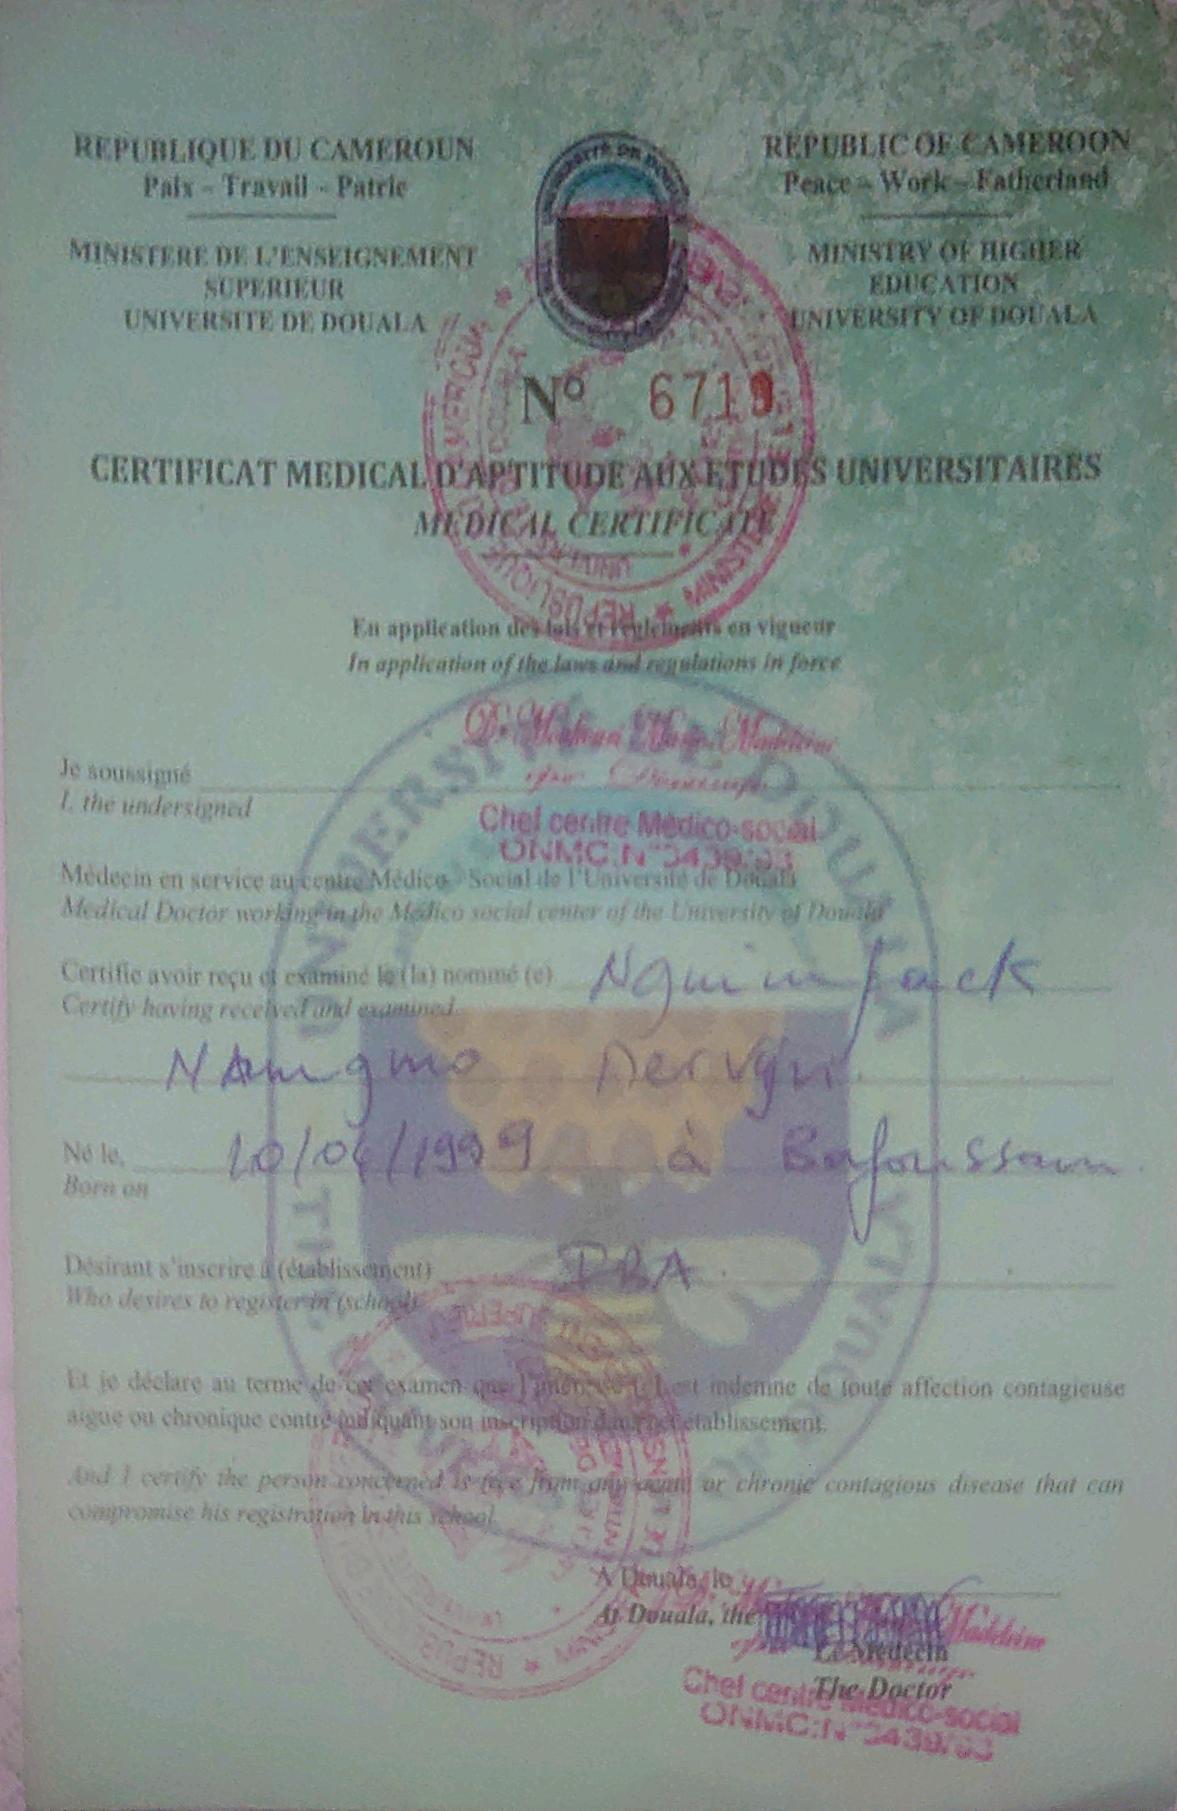 REPUBLIQUE DU CAMEROUN
Paix - Travail - Patrie
MINISTERE DE L'ENSEIGNEMENT
SUPERIEUR
UNIVERSITE DE DOUALA
REPUBLIC OF CAMEROON
Peace - Work - Fatherland
MINISTRY OF HIGHER
EDUCATION
UNIVERSITY OF DOUALA
N° 671
CERTIFICAT MEDICAL D'APTITUDE AUX ETUDES UNIVERSITAIRES
MEDICAL CERTIFICATE
En application des lois et règlements en vigueur
In application of the laws and regulations in force
Je soussigné
I, the undersigned
Chef centre Médico-social
ONMC:N°
Médecin en service au centre Médico - Social de l'Université de Douala
Medical Doctor working in the Medico social center of the University of Douala
Certifie avoir reçu et examiné le (la) nommé (e) Nguimfack
Certify having received and examined
NAmgmo
Né le, 10/04/1999 à Bafoussam
Born on
Désirant s'inscrire à (établissement)
Who desires to register in (school)
Et je déclare au terme de cet examen que l'intéressé (e) est indemne de toute affection contagieuse
aigue ou chronique contre indiquant son inscription dans cet établissement.
And I certify the person concerned is free from any acute or chronic contagious disease that can
compromise his registration in this school.
A Douala, le
At Douala, the
Madeleine
Le Médecin
The Doctor
Chef centre Médico-social
ONMC:N°